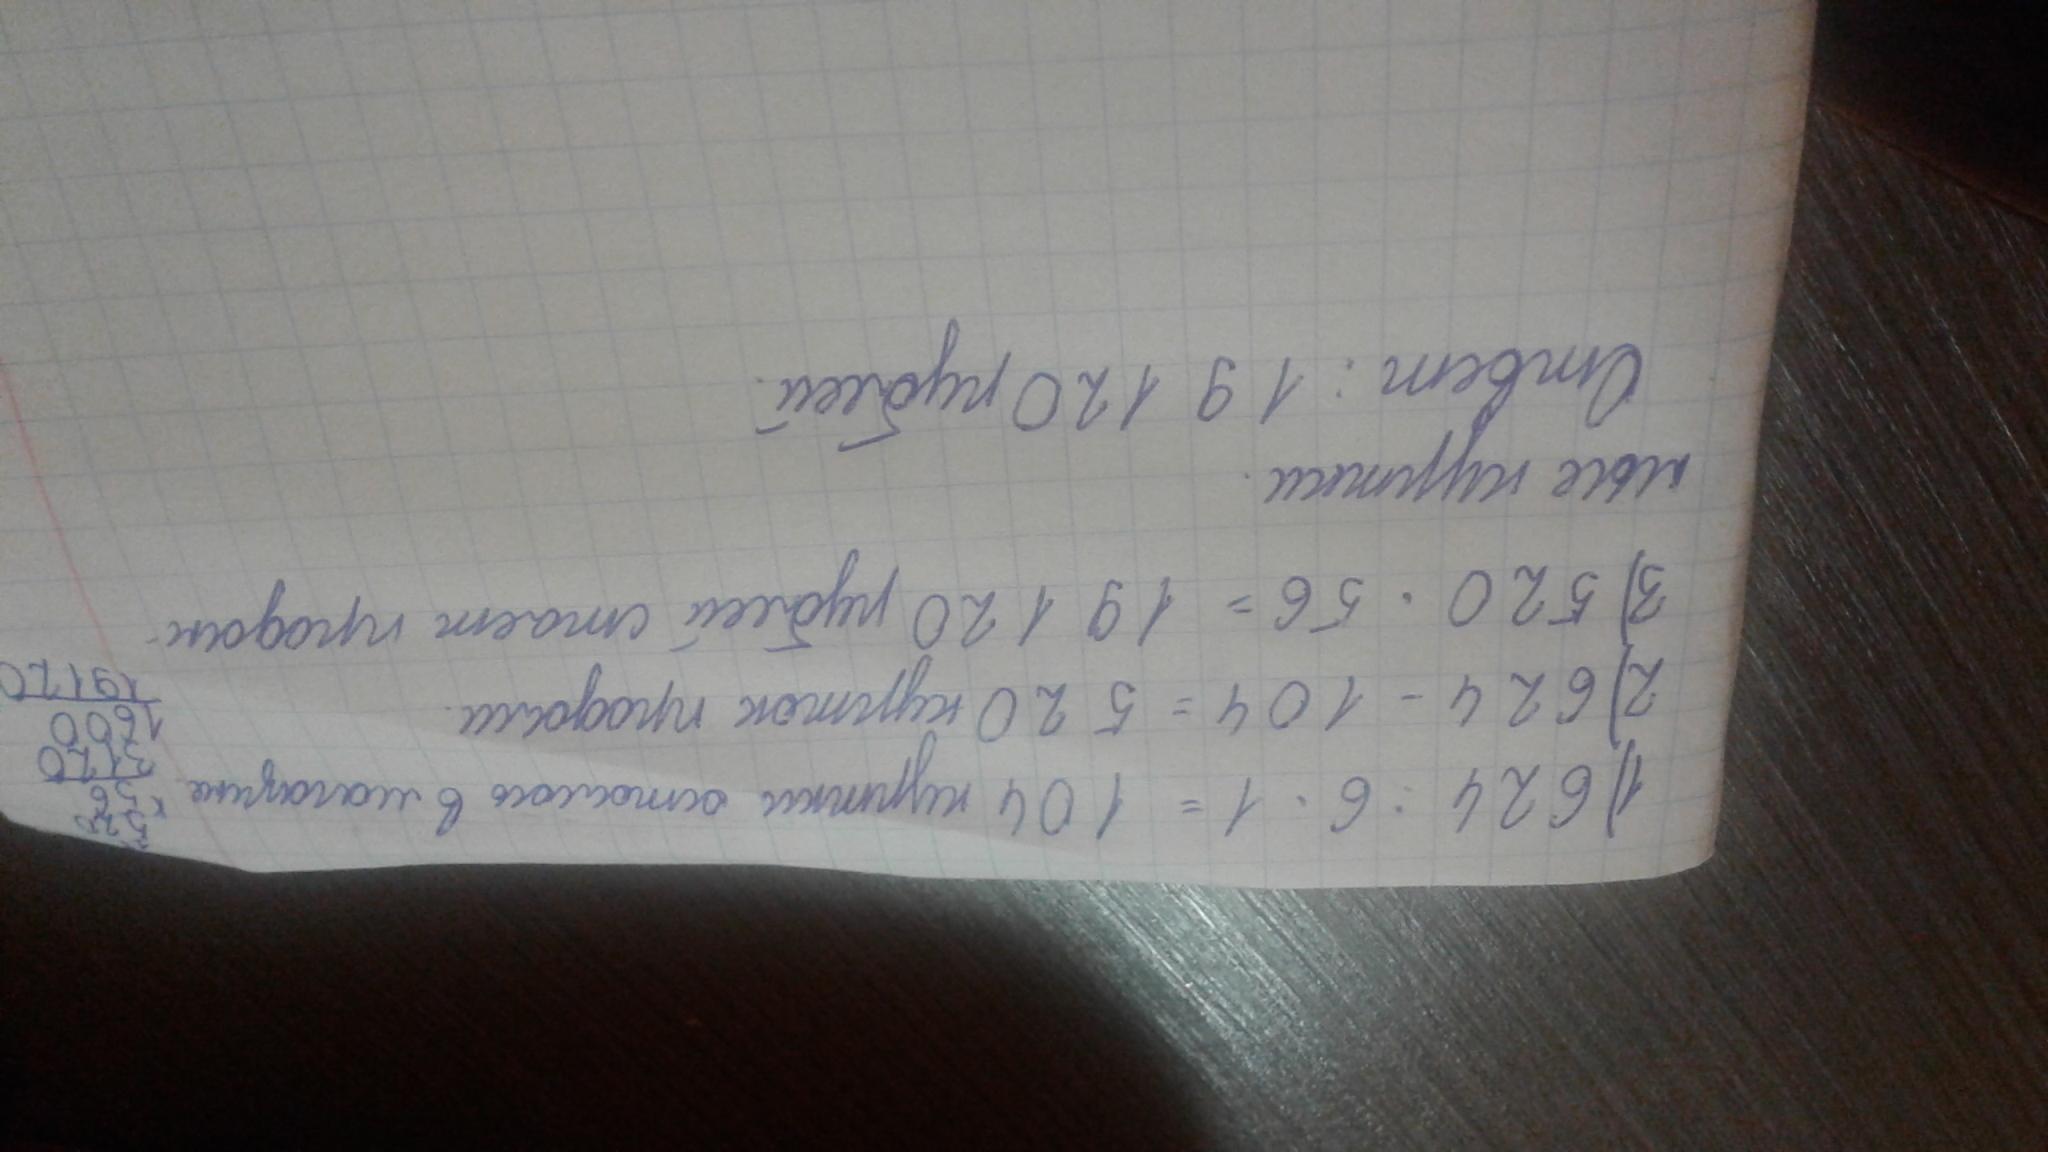 1) 624 : 6 · 1 = 104 куртки осталось в магазине
2) 624 - 104 = 520 курток продали.
3) 520 · 56 = 19 120 рублей стоет продан-
ные куртки.
Ответ: 19 120 рублей.
520
× 56
3120
1600
19120